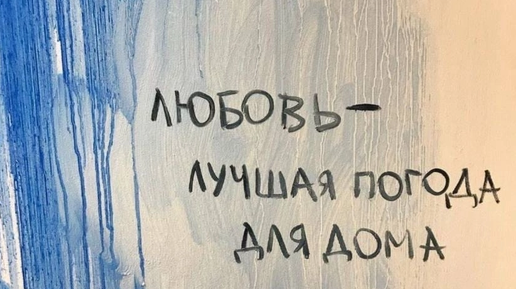 ЛЮБОВЬ–
ЛУЧШАЯ ПОГОДА
ДЛЯ ДОМА